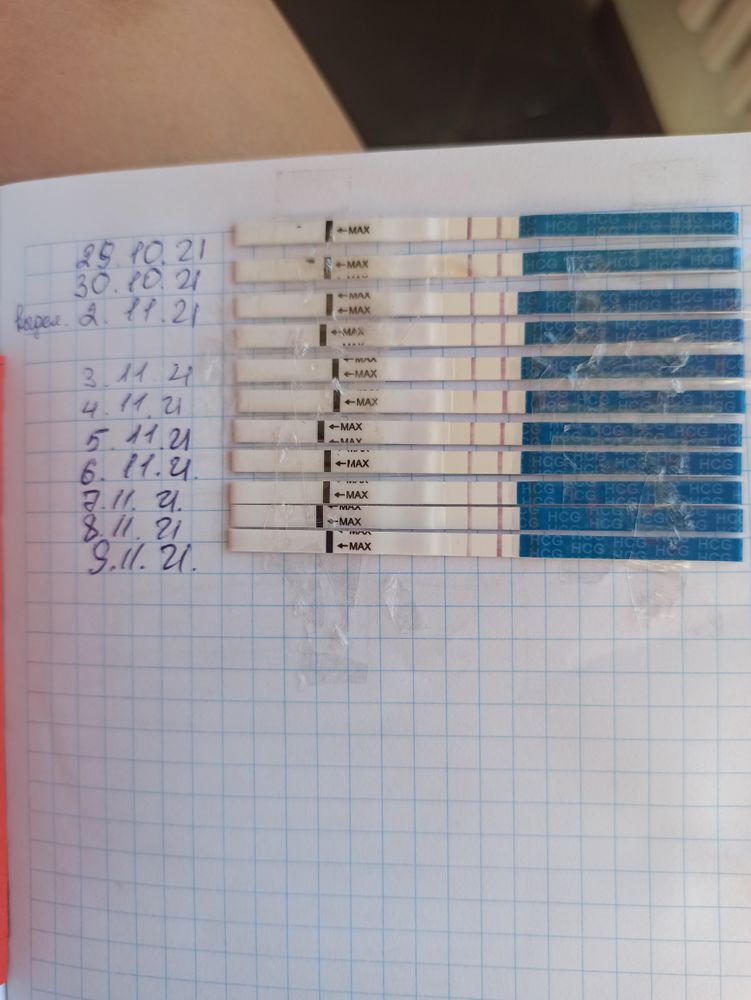 29.10.21
30.10.21
выдел. 2.11.21
3.11.21
4.11.21
5.11.21
6.11.21.
7.11.21.
8.11.21
9.11.21.
←MAX HCG HCG HCG
←MAX HCG HCG HCG
←MAX HCG HCG HCG
←MAX HCG HCG HCG
←MAX HCG HCG HCG
←MAX HCG HCG HCG
←MAX HCG HCG HCG
←MAX HCG HCG HCG
←MAX HCG HCG HCG
←MAX HCG HCG HCG
←MAX HCG HCG HCG